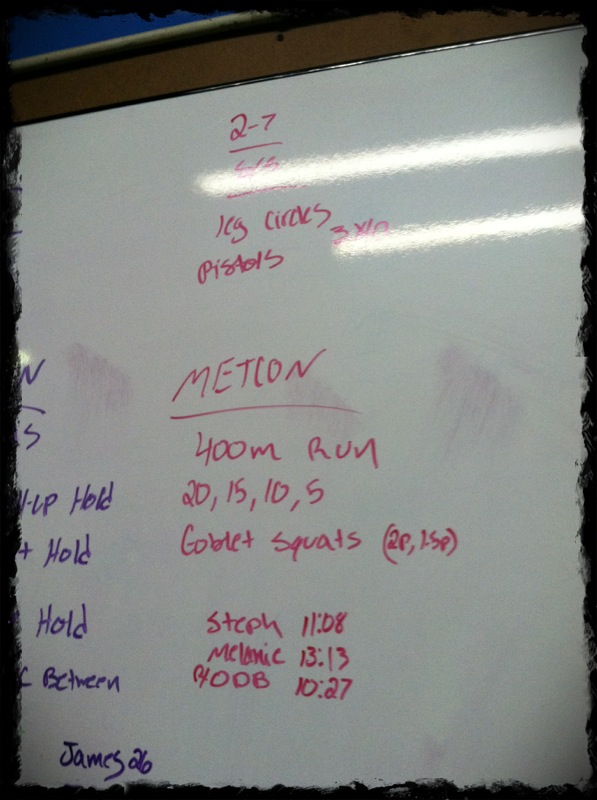 2-7
S/S
leg circles
3x10
Pistols
N
METCON
S
400m Run
20, 15, 10, 5
-up Hold
Goblet squats (2p, 1.5p)
+ Hold
Hold
Steph 11:08
Melanie 13:13
Between
10:27
James 26